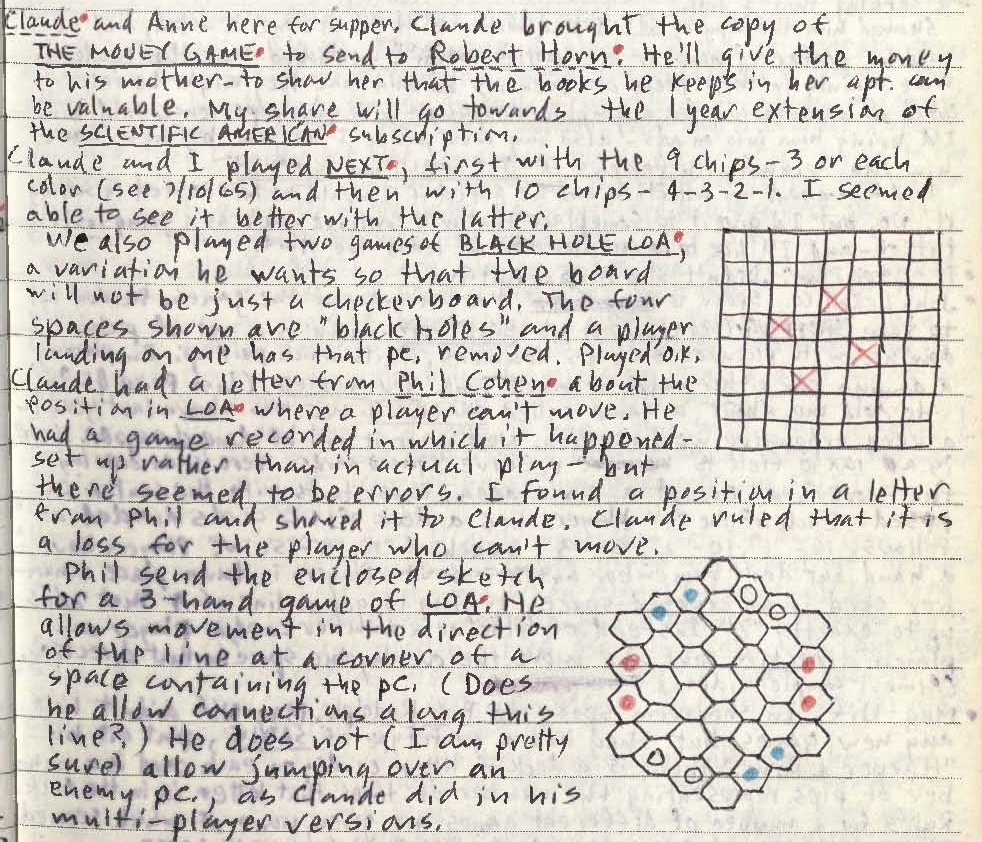 Claude and Anne here for supper. Claude brought the copy of
THE MONEY GAME to send to Robert Horn. He'll give the money
to his mother - to show her that the books he keeps in her apt. can
be valuable. My share will go towards the 1 year extension of
the SCIENTIFIC AMERICAN subscription.
Claude and I played NEXT, first with the 9 chips - 3 or each
color (see 7/10/65) and then with 10 chips - 4-3-2-1. I seemed
able to see it better with the latter.
We also played two games of BLACK HOLE LOA,
a variation he wants so that the board
will not be just a checkerboard. The four
spaces shown are "black holes" and a player
landing on one has that pc. removed. Played O.K.
Claude had a letter from Phil Cohen about the
position in LOA where a player can't move. He
had a game recorded in which it happened -
set up rather than in actual play - but
there seemed to be errors. I found a position in a letter
from Phil and showed it to Claude. Claude ruled that it is
a loss for the player who can't move.
Phil send the enclosed sketch
for a 3-hand game of LOA. He
allows movement in the direction
of the line at a corner of a
space containing the pc. (Does
he allow connections along this
line?) He does not (I am pretty
sure) allow jumping over an
enemy pc., as Claude did in his
multi-player versions.